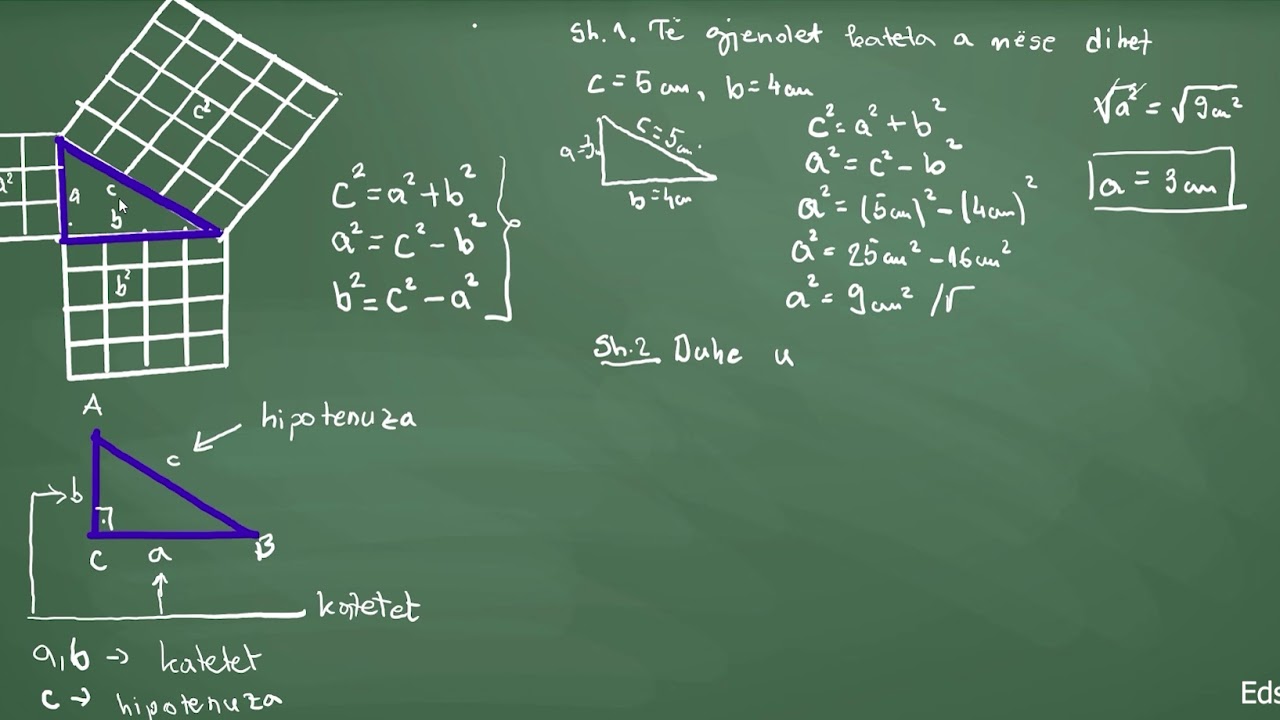 c²
a²
a
c
b
b²
c² = a² + b²
a² = c² - b²
b² = c² - a²
A
hipotenuza
c
b
C
a
B
katetet
a,b → katetet
c → hipotenuza
Sh.1. Të gjendet kateta a nëse dihet
c = 5 cm, b = 4 cm
c = 5 cm
b = 4 cm
c² = a² + b²
a² = c² - b²
a² = (5cm)² - (4cm)²
a² = 25cm² - 16cm²
a² = 9cm² /√
√a² = √9cm²
a = 3 cm
Sh.2 Duke u
Eds